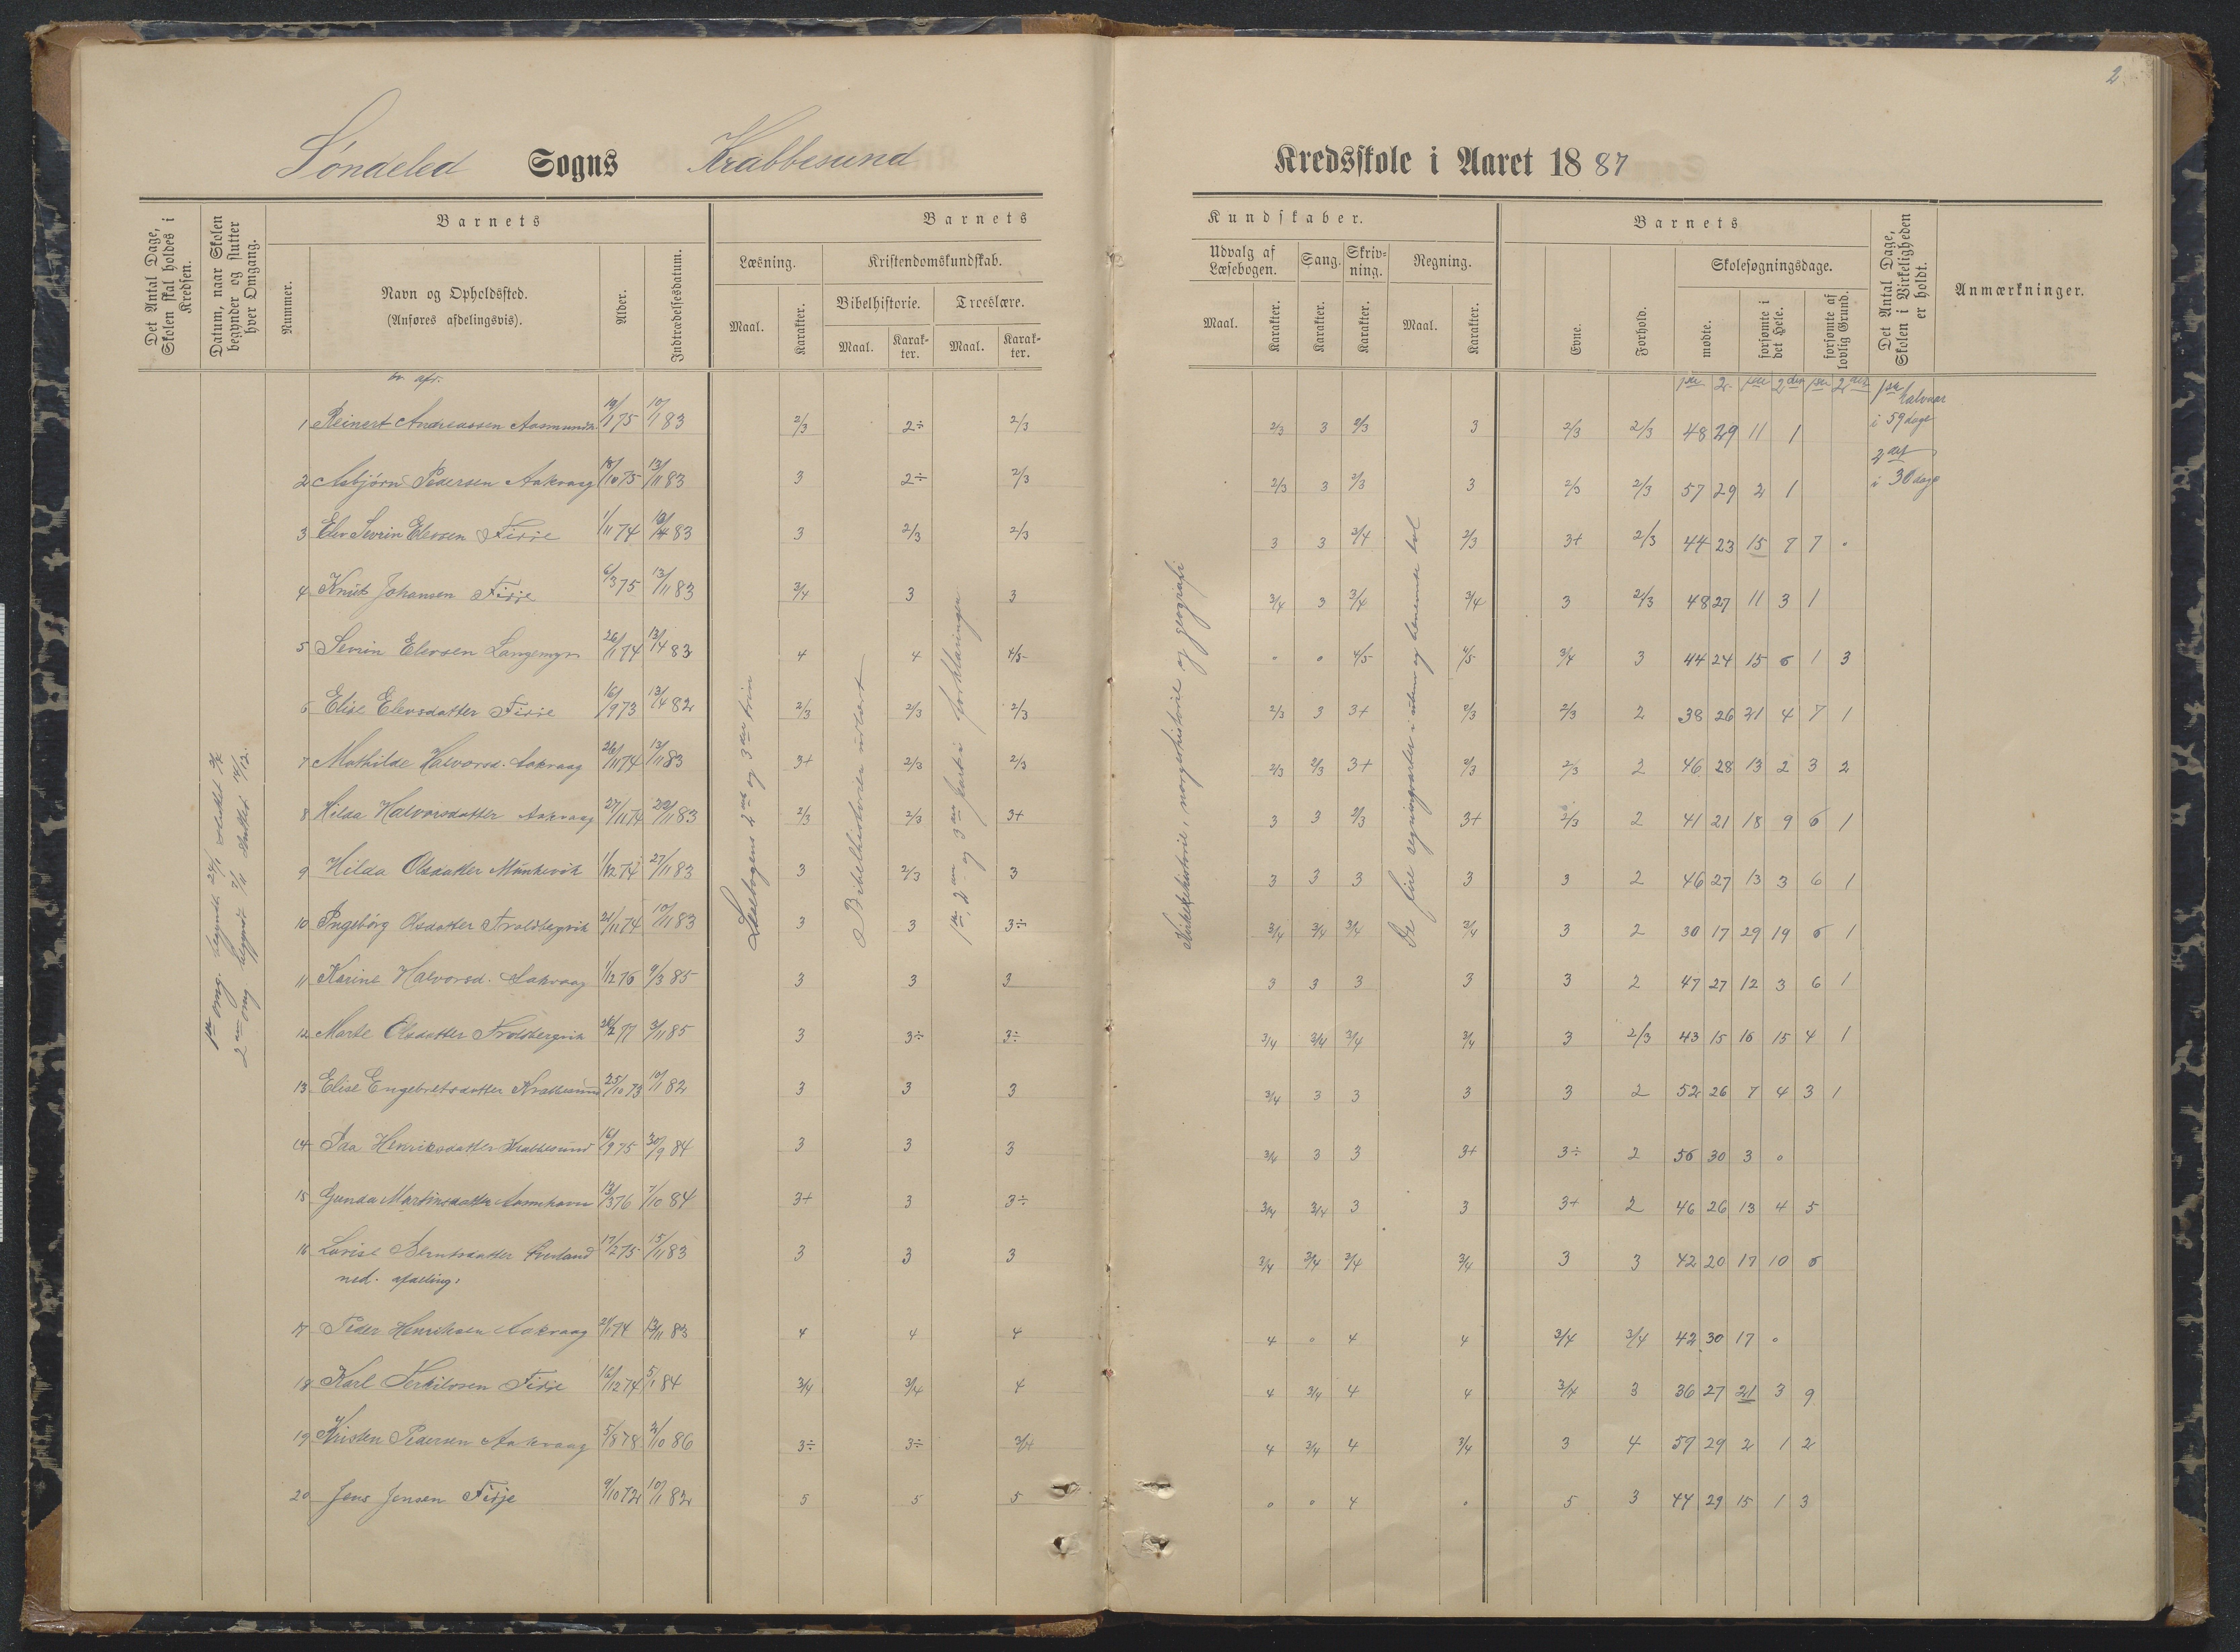 2
Søndeled Sogns Krabbesund Kredsskole i Aaret 1887
Det Antal Dage, Skolen skal holdes i Kredsen.
Datum, naar Skolen begynder og slutter hver Omgang.
Barnets
Nummer.
Navn og Opholdssted.
(Anføres afdelingsvis).
Alder.
Indtrædelsesdatum.
Barnets
Læsning.
Maal.
Karakter.
Kristendomskundskab.
Bibelhistorie.
Maal.
Karak-
ter.
Troeslære.
Maal.
Karak-
ter.
Kundskaber.
Udvalg af
Læsebogen.
Maal.
Karakter.
Sang.
Karakter.
Skriv-
ning.
Karakter.
Regning.
Maal.
Karakter.
Barnets
Evne.
Forhold.
Skolesøgningsdage.
mødte.
forsømte i
det Hele.
forsømte af
lovlig Grund.
Det Antal Dage,
Skolen i Virkeligheden
er holdt.
Anmærkninger.
1ste halvaar
i 59 dage
2det
i 30 dage
Læsebogens 2det og 3die trin
Bibelhistorien udlært
1ste, 2den og 3die part i forklaringen
Kirkehistorie, norgeshistorie og geografi
De fire regningsarter i ubenævnte tal
1 Reinert Andreassen 19/1 75 10/1 83 2/3 2÷ 2/3 2/3 3 2/3 3 2/3 2/3 48 29 11 1
2 Asbjørn Pedersen Aakvaag 18/10 75 13/11 83 3 2÷ 2/3 2/3 3 2/3 3 2/3 2/3 57 29 2 1
3 Elev Sevrin Elevsen Fidje 1/11 74 83 3 2/3 2/3 3 3 3/4 2/3 3+ 2/3 44 23 15 7 7 0
4 Knut Johansen Fidje 6/3 75 13/11 83 3/4 3 3 3/4 3 3/4 3/4 3 2/3 48 27 11 3 1
5 Sevrin Elevsen Langemyr 26/1 74 13/4 83 4 4 4/5 0 0 4/5 4/5 3/4 3 44 24 15 6 1 3
6 Elise Elevsdatter Fidje 16/9 73 13/4 82 2/3 2/3 2/3 2/3 3 3+ 2/3 2/3 2 38 26 21 4 7 1
7 Mathilde Halvorsd. Aakvaag 26/11 74 13/11 83 3+ 2/3 2/3 2/3 2/3 3+ 2/3 2/3 2 46 28 13 2 3 2
8 Hilda Halvorsdatter Aakvaag 27/11 74 22/11 83 2/3 2/3 3+ 3 3 2/3 3+ 2/3 2 41 21 18 9 6 1
9 Hilda Olsdatter Munkevik 1/12 74 27/11 83 3 2/3 3 3 3 3 3 3 2 46 27 13 3 6 1
10 Ingeborg Olsdatter Troldbergvik 21/11 74 10/11 83 3 3 3÷ 3/4 3/4 3/4 3/4 3 2 30 17 29 19 6 1
11 Karine Halvorsd. Aakvaag 1/12 76 9/3 85 3 3 3 3 3 3 3 3 2 47 27 12 3 6 1
12 Marte Olsdatter Troldbergvik 77 3/11 85 3 3÷ 3÷ 3/4 3/4 3/4 3/4 3 2/3 43 15 16 15 4 1
13 Elise Engebretsdatter Krabbesund 25/10 73 10/1 82 3 3 3 3/4 3 3 3 3 2 52 26 7 4 3 1
14 Henriksdatter Krabbesund 16/9 75 30/9 84 3 3 3 3/4 3 3 3+ 3÷ 2 56 30 3 0
15 Gunda Martinsdatter 13/3 76 7/10 84 3+ 3 3÷ 3/4 3/4 3 3 3+ 2 46 26 13 4 5
16 Lovise Berntsdatter 17/2 75 15/11 83 3 3 3 3/4 3/4 3/4 3/4 3 3 42 20 17 10 6
ned. afdeling:
17 Peder Henriksen Aakvaag 2/1 74 13/11 83 4 4 4 4 0 4 4 3/4 3/4 42 30 17 0
18 Karl Terkilsen Fidje 16/12 74 5/1 84 3/4 3/4 4 4 3/4 4 4 3/4 3 36 27 21 3 9
19 Kristen Pedersen Aakvaag 5/8 78 2/10 86 3÷ 3÷ 3/4 4 3/4 4 3/4 3 4 57 29 2 1 2
20 Jens Jensen Fidje 9/10 72 10/1 82 5 5 5 0 0 4 0 5 3 44 29 15 1 3